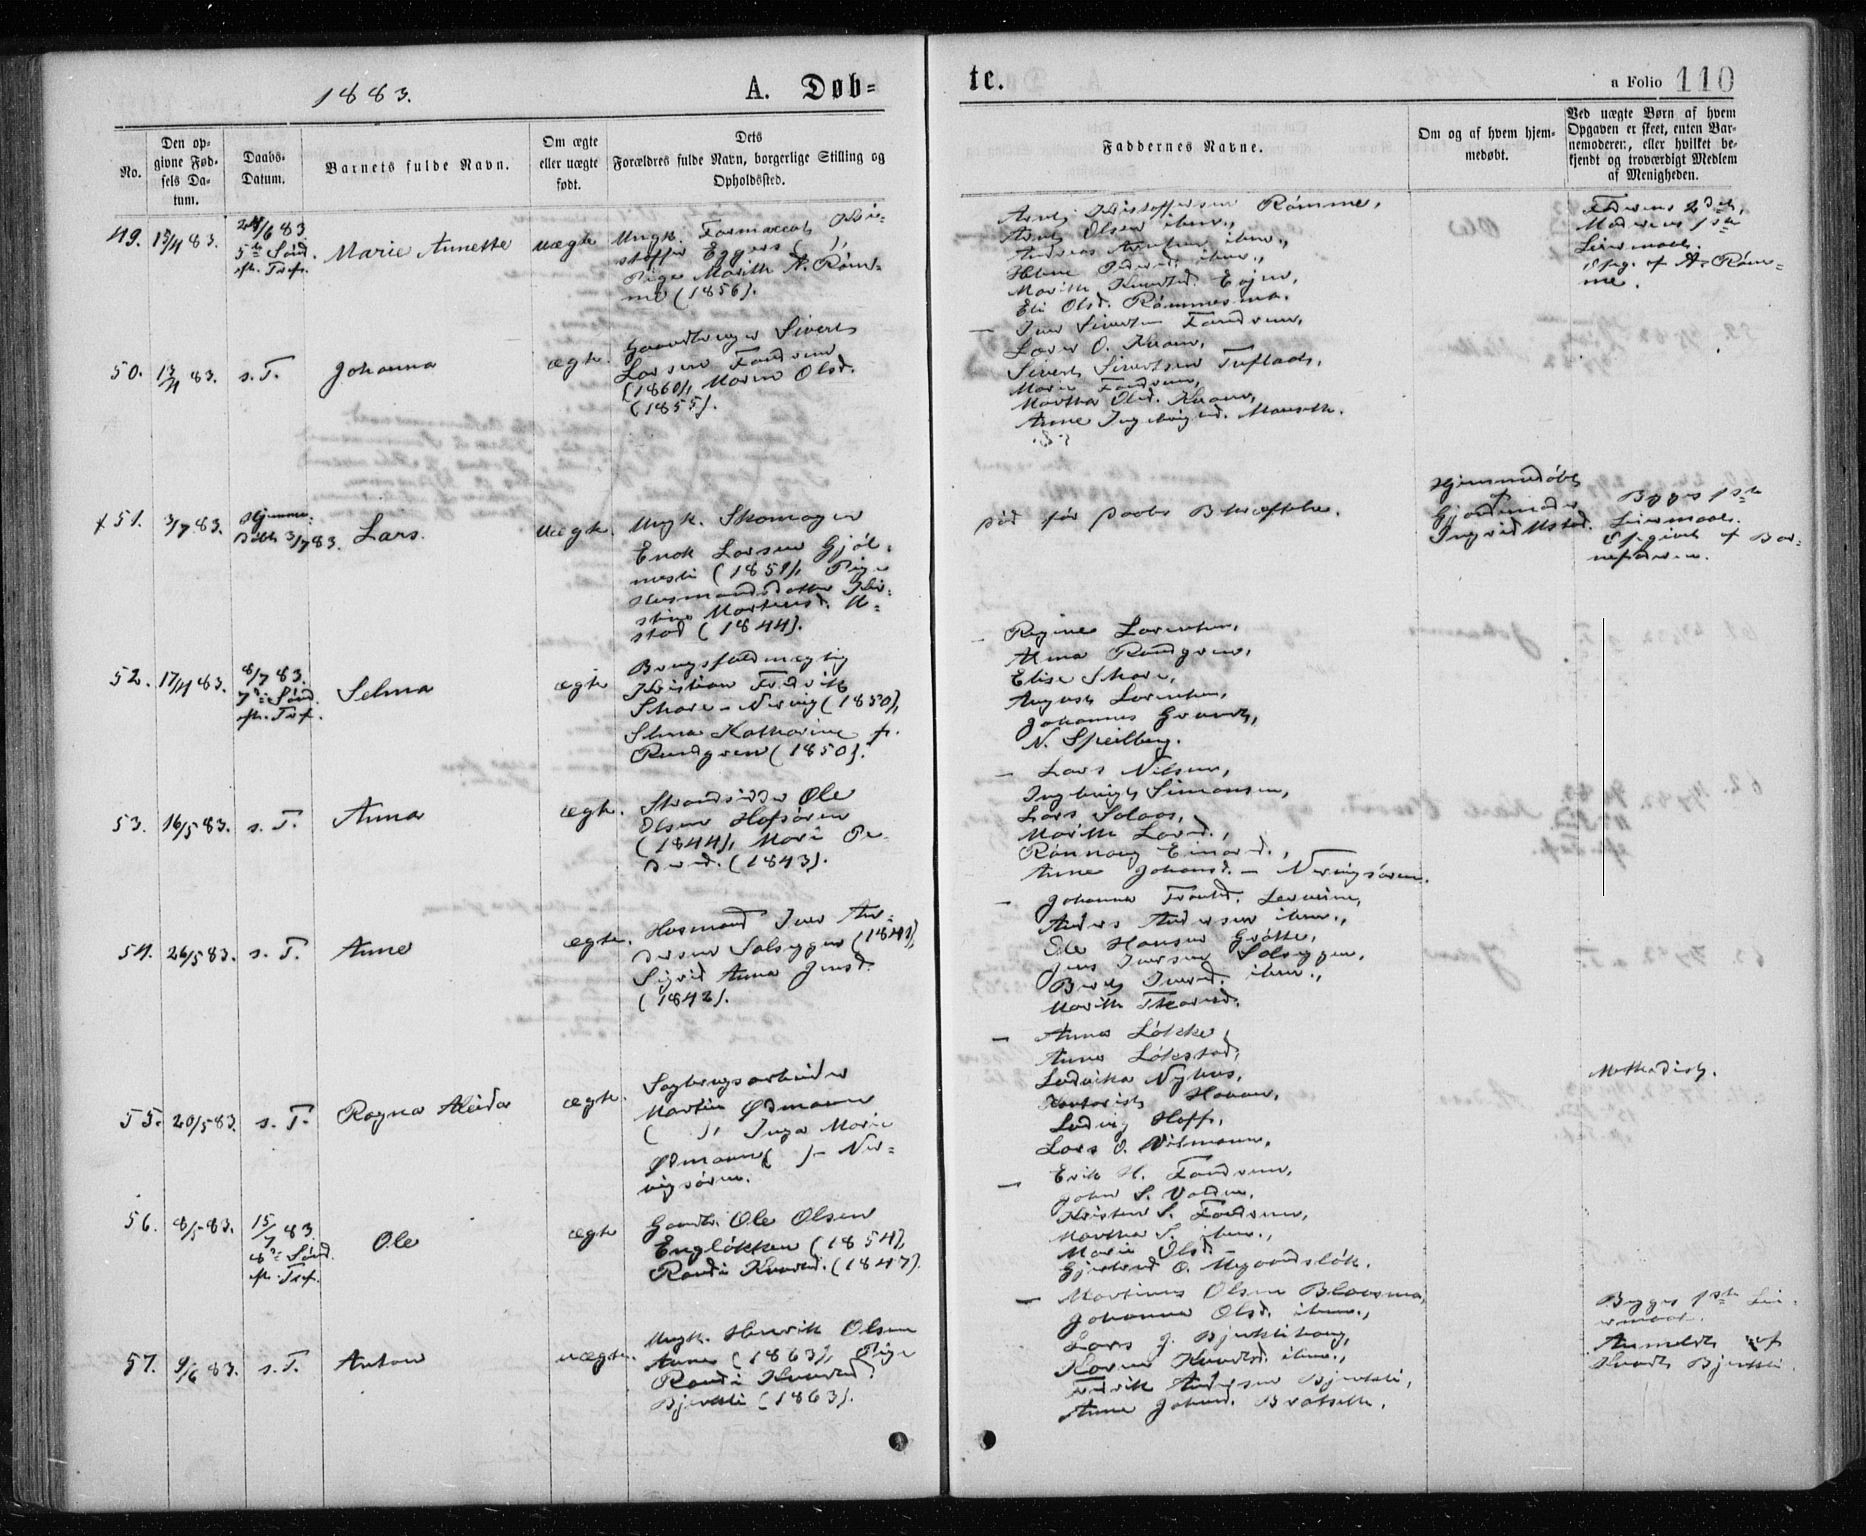 1883.
A. Døb=
te.
a Folio 110
No.
Den op-
givne Fød-
sels Da-
tum.
Daabs-
Datum.
Barnets fulde Navn.
Om ægte
eller uægte
født.
Dets
Forældres fulde Navn, borgerlige Stilling og
Opholdssted.
Faddernes Navne.
Om og af hvem hjem-
medøbt.
Ved uægte Børn af hvem
Opgaven er skeet, enten Bar-
nemoderen, eller hvilket be-
kjendt og troværdigt Medlem
af Menigheden.
49. 15/4 83.
24/6 83.
5te Sønd.
eft. Tref.
Marie Annette
uægte
Ungk. Kri-
stoffer Eggers ( ),
Pige Marith A. Røm-
me (1856).
Arnt Kristoffersen Rømme,
Arnt Olsen ibm.,
ibm.,
ibm.,
Marith
Eli Olsd. Rømmesmo.
Faderens 2det,
Moderens 1ste
Leiermaal.
Opg. af A. Røm-
me.
50. 13/4 83. s. T. Johanna
ægte.
Gaardbruger Sivert
Larsen Fandrem
(1860), Maren Olsd.
(1855).
— Iver Sivertsen Fandrem,
Lars O. Kvam,
Sivert Sivertsen
Marit Fandrem,
Martha Olsd. Kvam,
Anne
51. 3/7 83.
Hjemme-
døbt 3/7 83.
Lars.
uægte.
Ungk. Skomager
Enok Larsen Gjøl-
mesli (1851), Pige
Husmandsdatter Kir-
stine Martinusd. U-
stad (1844).
Død før Daabs Bekræftelse.
Hjemmedøbt
af
Gjordemoder
Ingrid Ustad.
Begges 1ste
Leiermaal.
Opgivet af Bar-
nefaderen.
52. 17/4 83.
8/7 83.
7de Sønd.
eft. Tref.
Selma
ægte
Brugsfuldmægtig
Kristian Fredrik
Skare - Nerviq (1850),
Selma Katharine f.
Rundgren (1850).
— Regine Lorentzen,
Alma Rundgren,
Elise Skare,
August Lorentzen,
Johannes
N. Speilberg.
53. 16/5 83. s. T. Anna
ægte.
Strandsidder Ole
Olsen Hofsøren
(1844), Marit Pe-
dersd. (1843).
— Lars Nilsen,
Ingebrigt Simonsen,
Lars Solaas,
Marith Larsd.,
Rønnaug Einarsd.,
Anne Johansd. - Nervigsøren.
54. 26/5 83. s. T. Anne
ægte.
Husmand Iver An-
dersen Solseggen (1841),
Sigrid Anna Jensd.
(1842).
— Johanna
Anders Andersen ibm.,
Ole Hansen Grøtte,
Jens Iversen Solseggen,
Berit Iversd. ibm.,
Marith
55. 20/5 83. s. T. Ragna Aleida
ægte.
Sagbrugsarbeider
Martin Ødmann
( ), Inga Marie
Ødmann ( ) - Ner-
vigsøren.
— Anna Løkke,
Anna Løkstad,
Ludvika Nyhus,
Havan,
Ludvig Hoff,
Lars O.
Methodist.
56. 8/5 83.
15/7 83.
8de Sønd.
eft. Tref.
Ole
ægte
Gaardb. Ole Olsen
Engløkken (1854),
Randi Knudsd. (1847).
— Erik H. Fandrem,
John S. Valden,
Kristen S. Fandrem,
Martha S. ibm.,
Marit Olsd.
Gjertrud O. Megaardsløk.
57. 9/6 83. s. T. Anton
uægte.
Ungk. Henrik Olsen
Aunes (1863), Pige
Randi Knudsd.
Bjerkli (1863).
— Martinus Olsen Blaasmo,
Johanna Olsd. ibm.,
Lars J.
Karen Knudsd. ibm.,
Fredrik Andersen Bjerkli,
Anne
Begges 1ste Lei-
ermaal.
Anmeldt af
Knudt Bjerkli.